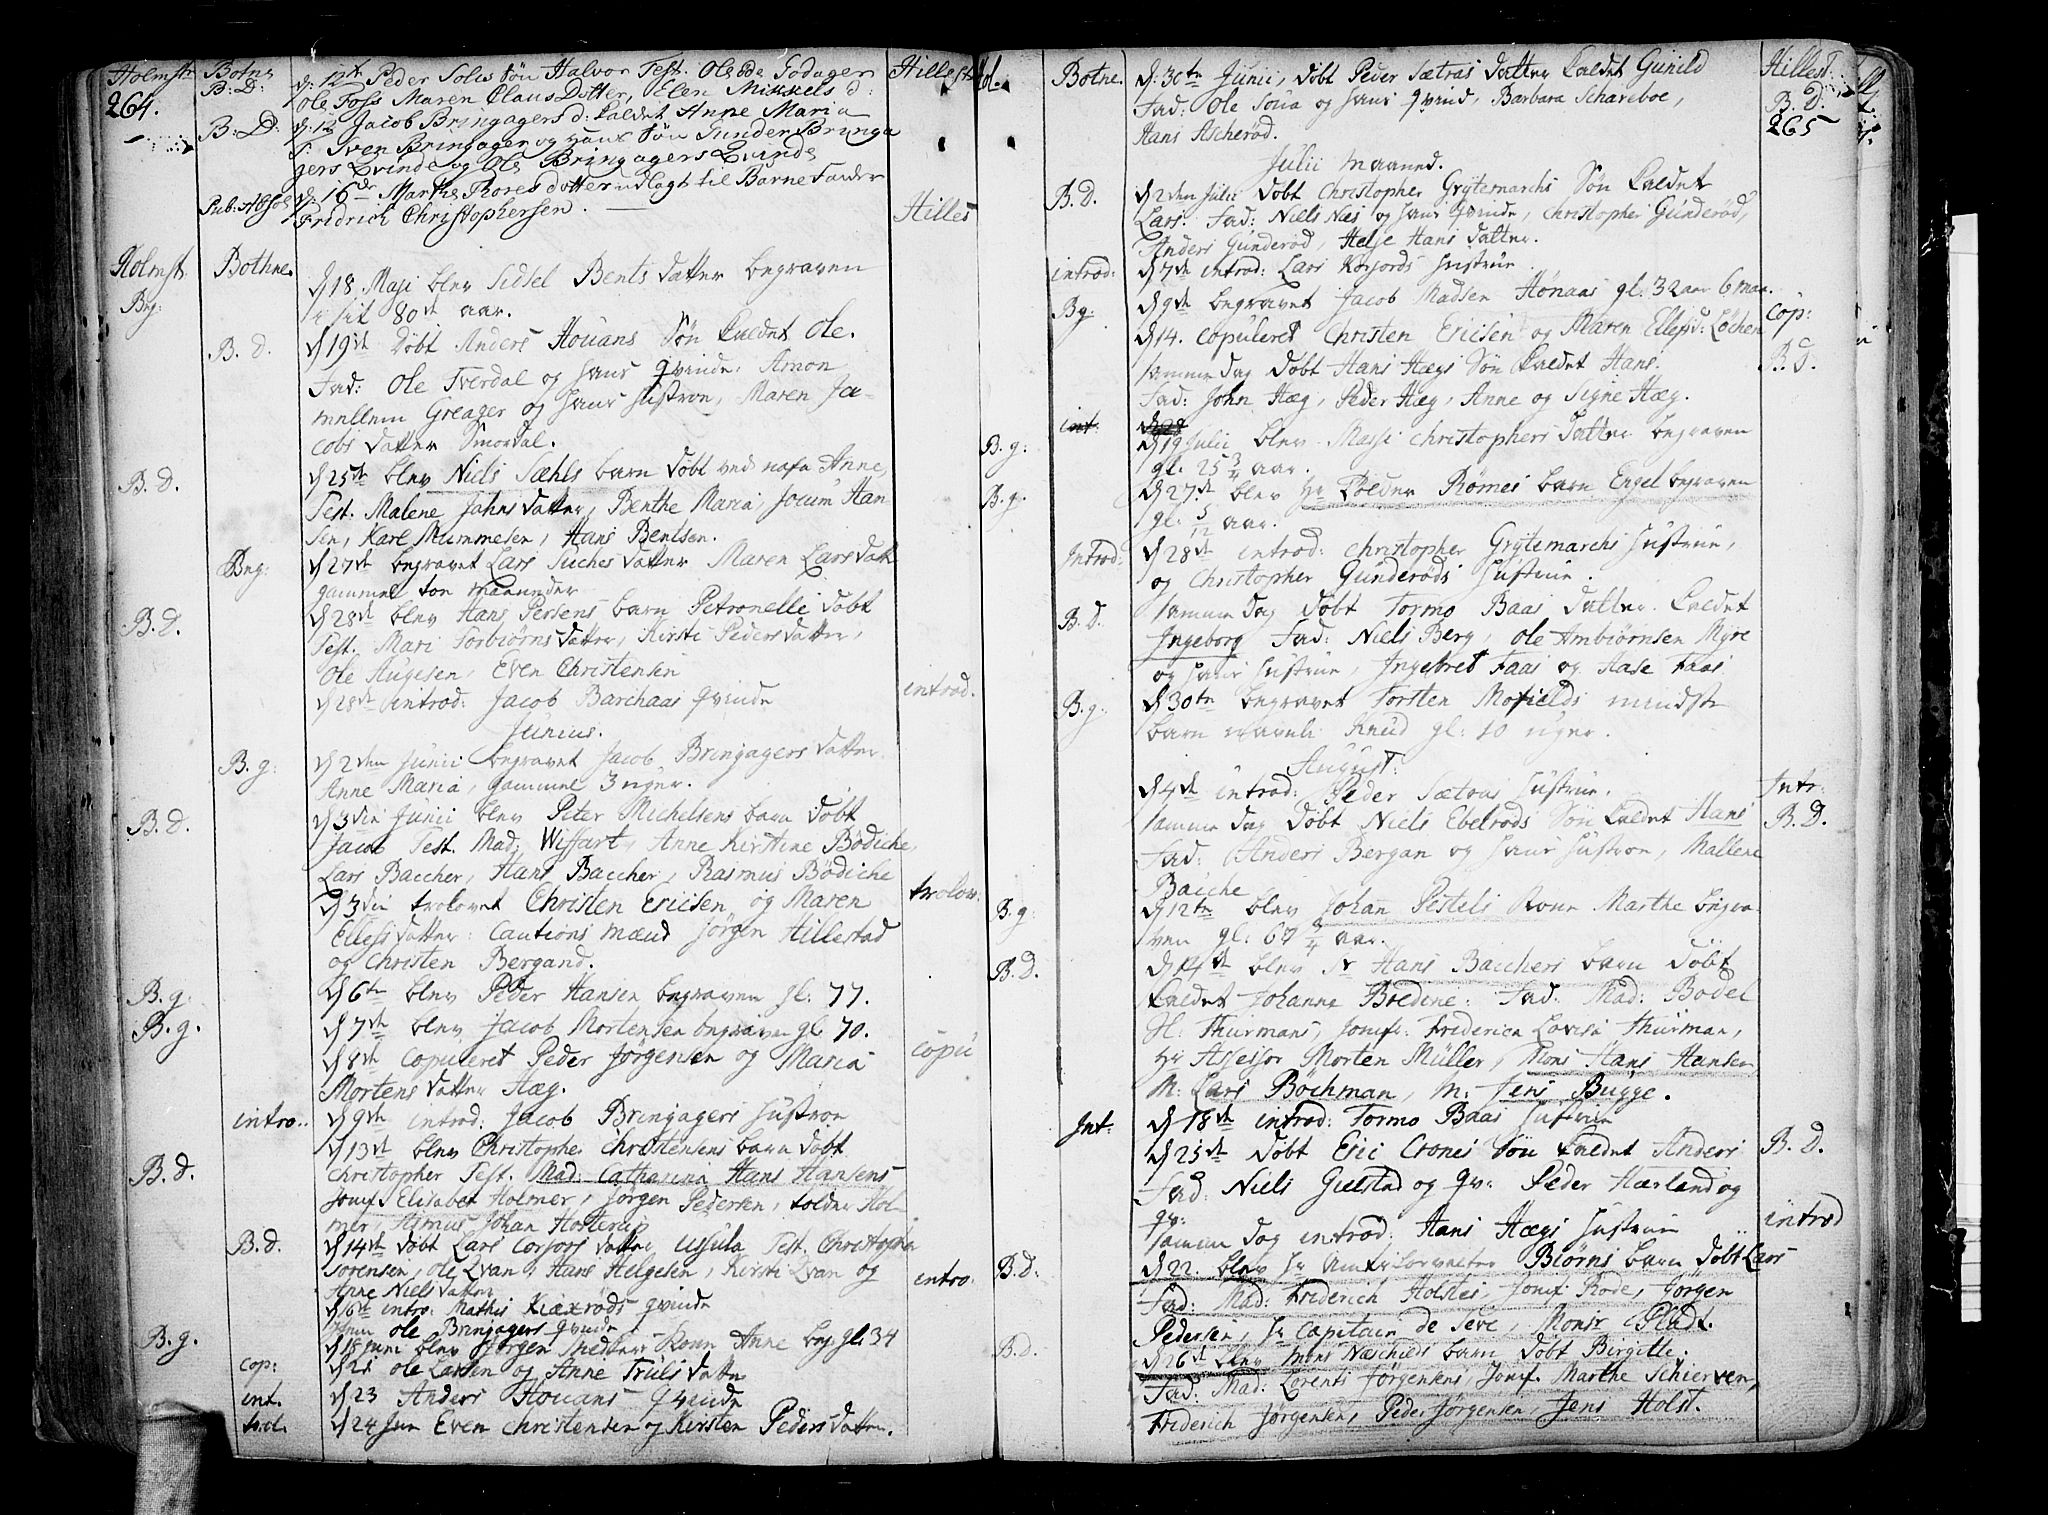 Holmstr Botne Hillest
264.
B: D: d: 12te Peder Solis Søn Halvor Test. Ols
Ole Foss Maren Claus Datter, Elen Mikkels d:
B: D: d: 12 Jacob Bringagers d: kaldet Anne Maria
T. Sven Bringager og hans Søn Gunder Bringa
gers Qvinde og Ole Bringagers Qvinde
Pub: Absol d: 16de Marthe Thores datter udlagt til Barne Fader
Fridrich Christophersen. Hilles
Holmst Bothne.
Beg: d 18 Maji blev Sidsel Bents datter begraven
i sit 80de aar.
B. d. d 19de døbt Anders Houans Søn kaldet Ole.
Fad: Ole Tverdal og hans qvinde, Amon
mellem Greager og hans hustroe, Maren Ja-
cobs datter Smordal.
B. D. d 25de blev Niels Sæhls barn døbt ved nafn Anne,
Test. Malene Jahns datter, Benthe Maria, Jocum Han-
sen, Karl Mummesen, Hans Bentsen.
Beg: d 27de begravet Lars Suches datter Maren Lars datt
gammel ton maaneder
B. D. d 28de blev Hans Persens barn Petronelle døbt
Test. Mari Torbiørns datter, Kirsti Peders datter,
Ole Augesen, Even Christensen
d 28de introd: Jacob Barchaas qvinde introd.
Junius.
B. g: d 2den Junii begravet Jacob Bringagers datter
Anne Maria, gammel 3 uger.
B. D. d 3die Junii blev Peter Michelsens barn døbt
Jacob Test. Mad. Wiffart, Anne Kirstine Bödiche,
Lars Baccher, Hans Baccher, Rasmus Bödiche
d 3die trolovet Christen Ericsen og Maren trolov.
Ellefs datter: Cautions mænd Jörgen Hillestad
og Christen Bergand.
B. g. d 6te blev Peder Hansen begraven gl: 77.
B. g. d 7de blev Jacob Mortensen begraven gl 70.
d 8de copuleret Peder Jörgensen og Maria copu
Mortens datter Hæg.
intro.. d 9de introd: Jacob Bringagers hustroe
B. d. d 13de blev Christophe Christensens barn døbt
Christopher Test. Mad: Catharina Hans Hansens
Jomf. Elisabet Holmer, Jörgen Pedersen, tolder Hol-
mer, Asmus Johan Hosterup
B. d. d 14de døbt Lars Corsors datter, Ussula Test. Christopher
Sorensen, Ole Evan, Hans Helgesen, Kirsti Evan og intro:
Anne Niels datter
d 16de intro: Mathis Kiærröds qvinde
Ole Bringagers qvinde
B. g. d 18 Juni blev Jörgen kone Anne beg gl: 34
cop: d 21 Ole Larsen og Anne Truls datter
int. d 23 Anders Houans qvinde
trol. d 24 Jun Even Christensen og Kirsten Peders datter.
Hol. Botne. Hillest:
d: 30te Junii, døbt Peder Sætras datter kaldet Gunild B. D.
Fad: Ole Soua og hans qvind, Barbara Schareboe, 265
Hans Ascheröd.
Julii maaned.
B. D. d 2den Julii døbt Christopher Grÿtemarchs Søn kaldet
Lars. Fad: Niels Næs og hans qvinde, Christopher Gunderöd,
Anders Gunderöd, Helje Hans datter.
introd: d 7de introd: Lars Korsords hustrue
Bg: d 9de begravet Jacob Madsen Hönaas gl: 32 aar 6 maa.
d 14. copuleret Christen Ericsen og Maren Ellefsd: Löchen Cop:
samme dag døbt Hans Hægs Søn kaldet Hans. B. d.
Fad: John Hæg, Peder Hæg, Anne og Signe Hæg.
int: d 28
B. g: d 19 Julii blev Massi Christophers datter begraven
gl. 25 3/4 aar.
B. g. d 27de blev Hr Tolder Römes barn Engel begraven
gl: 5/12 aar.
Introd: d 28de introd: Christopher Grÿtemarchs hustrue,
og Christopher Gunderöds hustrue.
B. D. samme dag døbt Tormo Baas datter kaldet
Ingeborg Fad: Niels Berg, Ole Ambiörnsen Myre
og hans hustrue, Ingebret Faas og Aase Faas
B. g. d 30te begravet Torsten Mofields mindste
barn navnli Knud gl: 10 uger.
August:
d 4de introd: Peder Sætras hustrue. Intr:
samme dag døbt Niels Ebelröds Søn kaldet Hans B. D.
Fad: Anders Bergan og hans hustroe, Mallene
Bacche
B. g. d 12te blev Johan Pestels kone Marthe begra-
ven gl: 67 3/4 aar.
B. D. d 14de blev Sr Hans Bacchers barn døbt
kaldet Johanne Bredine: Fad: Mad: Bodel
Sl: Thurmans, Jomfr: Frederica Lovisa Thurman,
Hr Assessor Morten Müller, Mons Hans Hansen
M: Lars Böchman, M: Jens Bugge.
Int: d 18de introd: Tormo Baas hustrue
d 25de døbt Eric Crones Søn kaldet Anders B. D.
Fad: Niels Gulstad og qv: Peder Hærland og
qv:
samme dag introd: Hans Hægs hustrue introd
B. D: d 22. blev Hr Amtsforvalter Biörns barn døbt Lars
Fad: Mad: Friderich Holstes, Jomf Rode, Jörgen
Pedersen, Hr Capitain de Seve, Monsr Pladt.
B. d. d 26de blev Mons Næschilds barn døbt Birgitte.
Fad: Mad: Lorents Jörgensens Jomf. Marthe Schierven,
Friderich Jörgensen, Peder Jörgensen, Jens Holst.